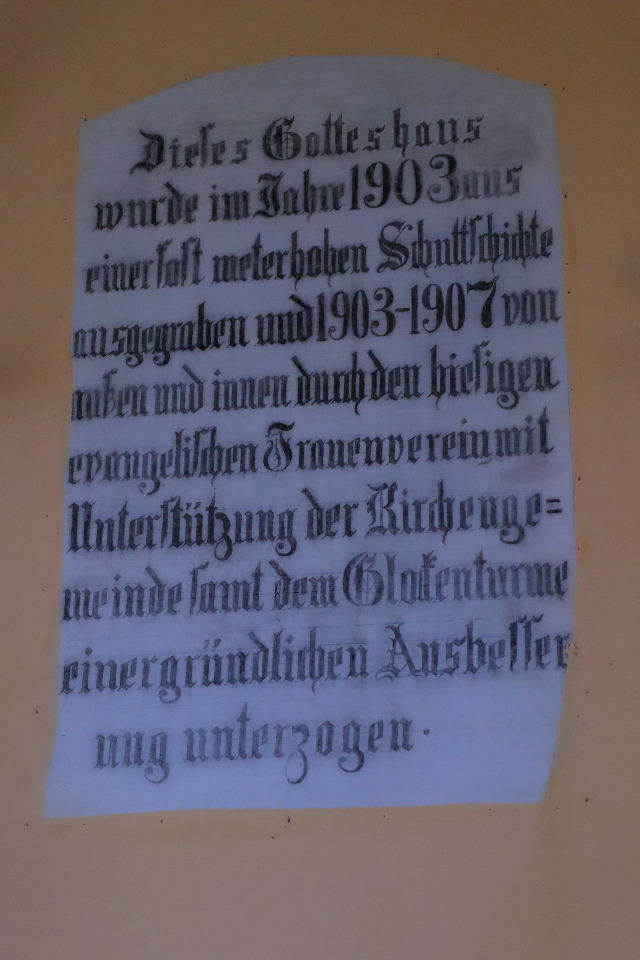 Dieses Gotteshaus
wurde im Jahre 1903 aus
einer fast meterhohen Schuttschichte
ausgegraben und 1903-1907 von
außen und innen durch den hiesigen
evangelischen Frauenverein mit
Unterstützung der Kirchenge=
meinde samt dem Glockenturme
einer gründlichen Ausbesser
ung unterzogen.